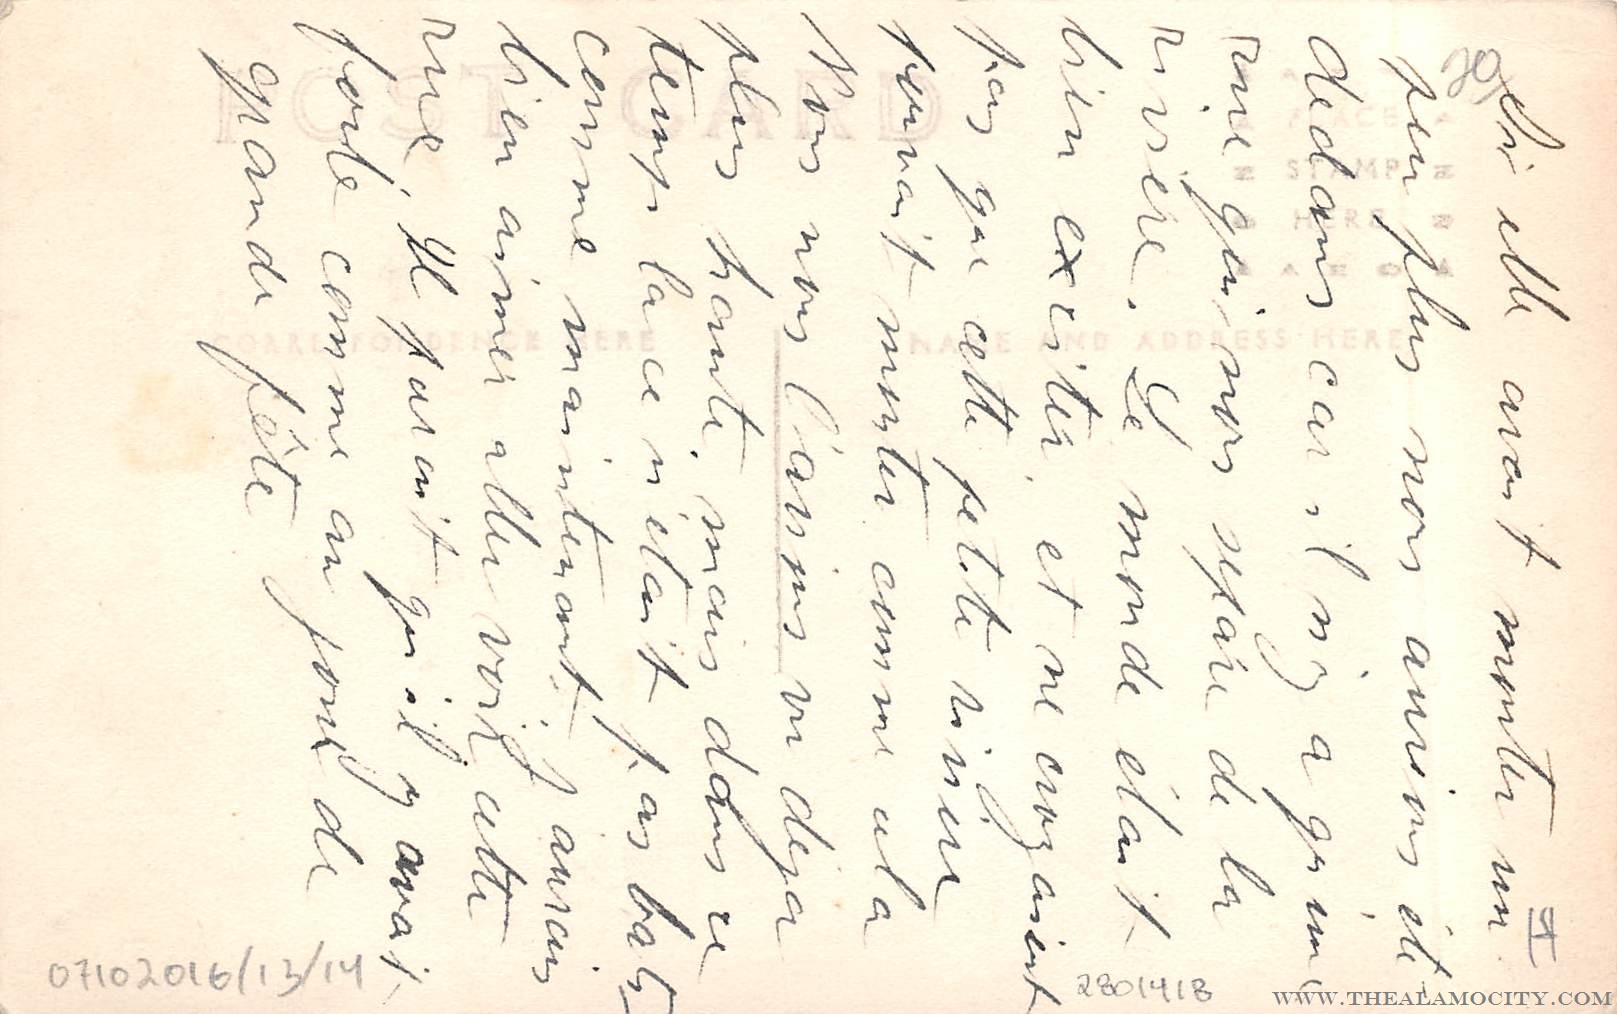 Si elle avait monter un
peu plus nous aurions été
dedans car il n'y a qu'une
rue qui nous separe de la
rivière. Le monde était
bien exciter, et ne croyaient
pas que cette petite rivière
pouvait monter comme cela
Nous nous l'avions vu deja
plus haute, mais dans ce
temps la ce n'était pas bati
comme maintenant, j'aurais
bien aimer aller voir cette
rue, Il parait qu'il y avait
foule comme au jour de
grande fête
20
II
POST CARD
PLACE
STAMP
HERE
CORRESPONDENCE HERE
NAME AND ADDRESS HERE
07102016/13/14
2801418
WWW.THEALAMOCITY.COM